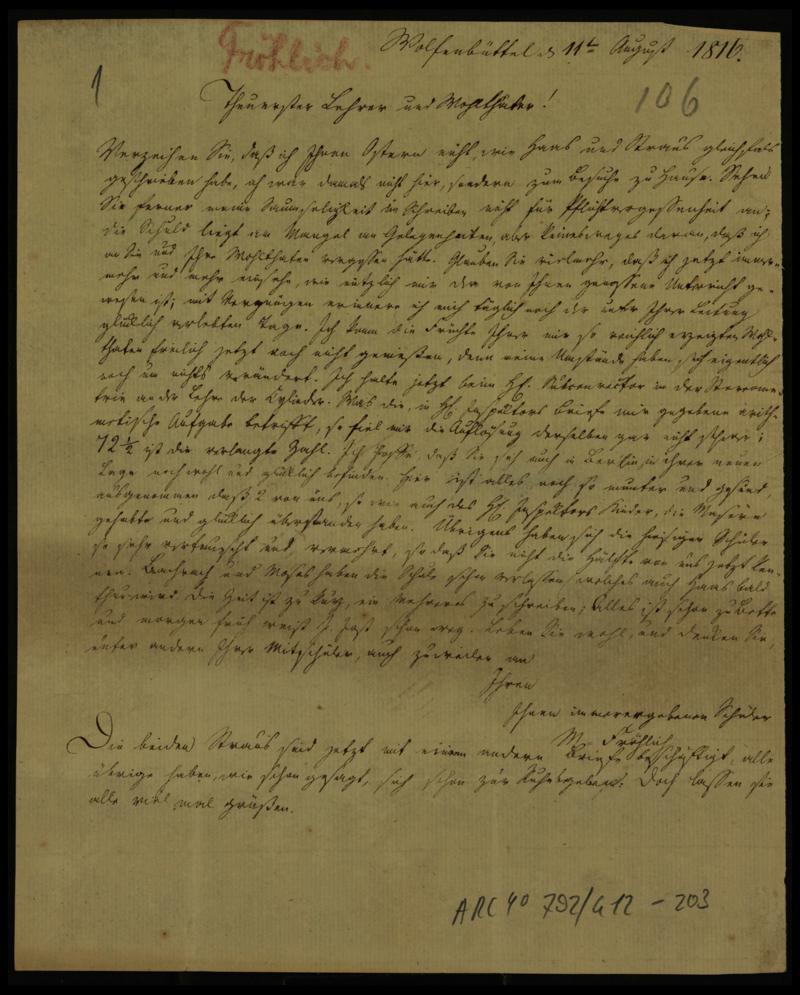 Fröhlich.
Wolfenbüttel d 11t August 1816.
1
106
Theuerster Lehrer und Wohlthäter!
Verzeihen Sie, daß ich Ihnen Ostern nicht, wie Haas und Straus gleichfals
geschrieben habe, ich war damals nicht hier, sondern zum Besuche zu Hause. Sehen
Sie ferner meine Saumseligkeit im Schreiben nicht für Pflichtvergessenheit an;
die Schuld liegt im Mangel an Gelegenheiten, aber keinesweges daran, daß ich
an Sie und Ihre Wohlthaten vergessen hätte. Glauben Sie vielmehr, daß ich jetzt immer
mehr und mehr einsehe, wie nützlich mir der von Ihnen genossene Unterricht ge-
wesen ist; mit Vergnügen erinnere ich mich täglich noch der unter Ihrer Leitung
glücklich verlebten Tage. Ich kann die Früchte Ihrer mir so reichlich erzeigten Wohl-
thaten freilich jetzt noch nicht genießen, denn meine Umstände haben sich eigentlich
noch um nichts verändert. Ich halte jetzt beim H. in der Stereome-
trie an der Lehre der Cylinder. Was die, in H. Inspektors Briefe mir gegebene arith-
metische Aufgabe betrifft, so fiel mir die Auflösung derselben gar nicht schwer;
72 ½ ist die verlangte Zahl. Ich hoffe, daß Sie sich auch in Berlin, in ihrer neuen
Lage noch wohl und glücklich befinden. Hier ist alles noch so munter und gesund,
ausgenommen daß 2 von uns, so wie auch des H. Inspektors Kinder, die Masern
gehabt und glücklich überstanden haben. Übrigens haben sich die hiesigen Schüler
so sehr vertauscht und vermehrt, so daß Sie nicht die Hälfte von uns jetzt ken-
nen. und Moses haben die Schule schon verlassen welches auch Haas bald
thun wird. Die Zeit ist zu kurz, ein Mehreres zu schreiben; alles ist schon zu Bette
und morgen früh reist H. Jost schon weg. Leben Sie wohl, und denken Sie,
unter andern Ihrer Mitschüler, auch zuweilen an
Ihren
Ihnen immerergebenen Schüler
M. Fröhlich
Die beiden Straus sind jetzt mit einem andern Briefe beschäftigt, alle
übrige haben, wie schon gesagt, sich schon zur Ruhe begeben; Doch lassen sie
alle viel mal grüßen.
ARC 4° 792/G12 - 203